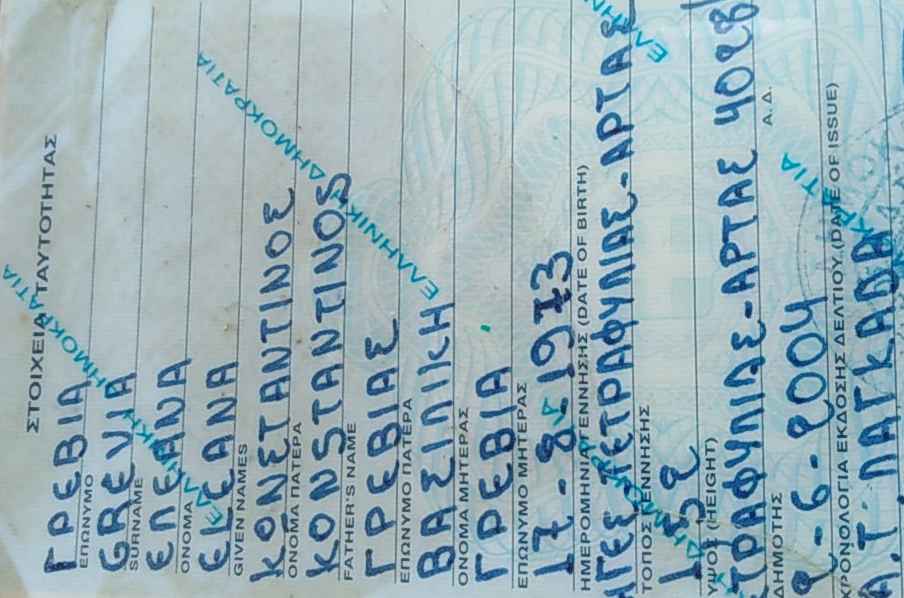 ΣΤΟΙΧΕΙΑ ΤΑΥΤΟΤΗΤΑΣ
ΓΡΕΒΙΑ
ΕΠΩΝΥΜΟ
GREVIA
SURNAME
ΕΛΕΑΝΑ
ΟΝΟΜΑ
ELEANA
GIVEN NAMES
ΚΟΝΣΤΑΝΤΙΝΟΣ
ΟΝΟΜΑ ΠΑΤΕΡΑ
KONSTANTINOS
FATHER'S NAME
ΓΡΕΒΙΑΣ
ΕΠΩΝΥΜΟ ΠΑΤΕΡΑ
ΒΑΣΙΛΙΚΗ
ΟΝΟΜΑ ΜΗΤΕΡΑΣ
ΓΡΕΒΙΑ
ΕΠΩΝΥΜΟ ΜΗΤΕΡΑΣ
17-8-1973
ΗΜΕΡΟΜΗΝΙΑ ΓΕΝΝΗΣΗΣ (DATE OF BIRTH)
ΤΟΠΟΣ ΓΕΝΝΗΣΗΣ
152
ΥΨΟΣ (HEIGHT)
ΑΡΤΑΣ
ΔΗΜΟΤΗΣ
Α.Δ.
6-2004
ΧΡΟΝΟΛΟΓΙΑ ΕΚΔΟΣΗΣ ΔΕΛΤΙΟΥ (DATE OF ISSUE)
Α.Τ. ΛΑΓΚΑΔΑ
ΕΛΛΗΝΙΚΗ ΔΗΜΟΚΡΑΤΙΑ
ΕΛΛΗΝΙΚΗ ΔΗΜΟΚΡΑΤΙΑ